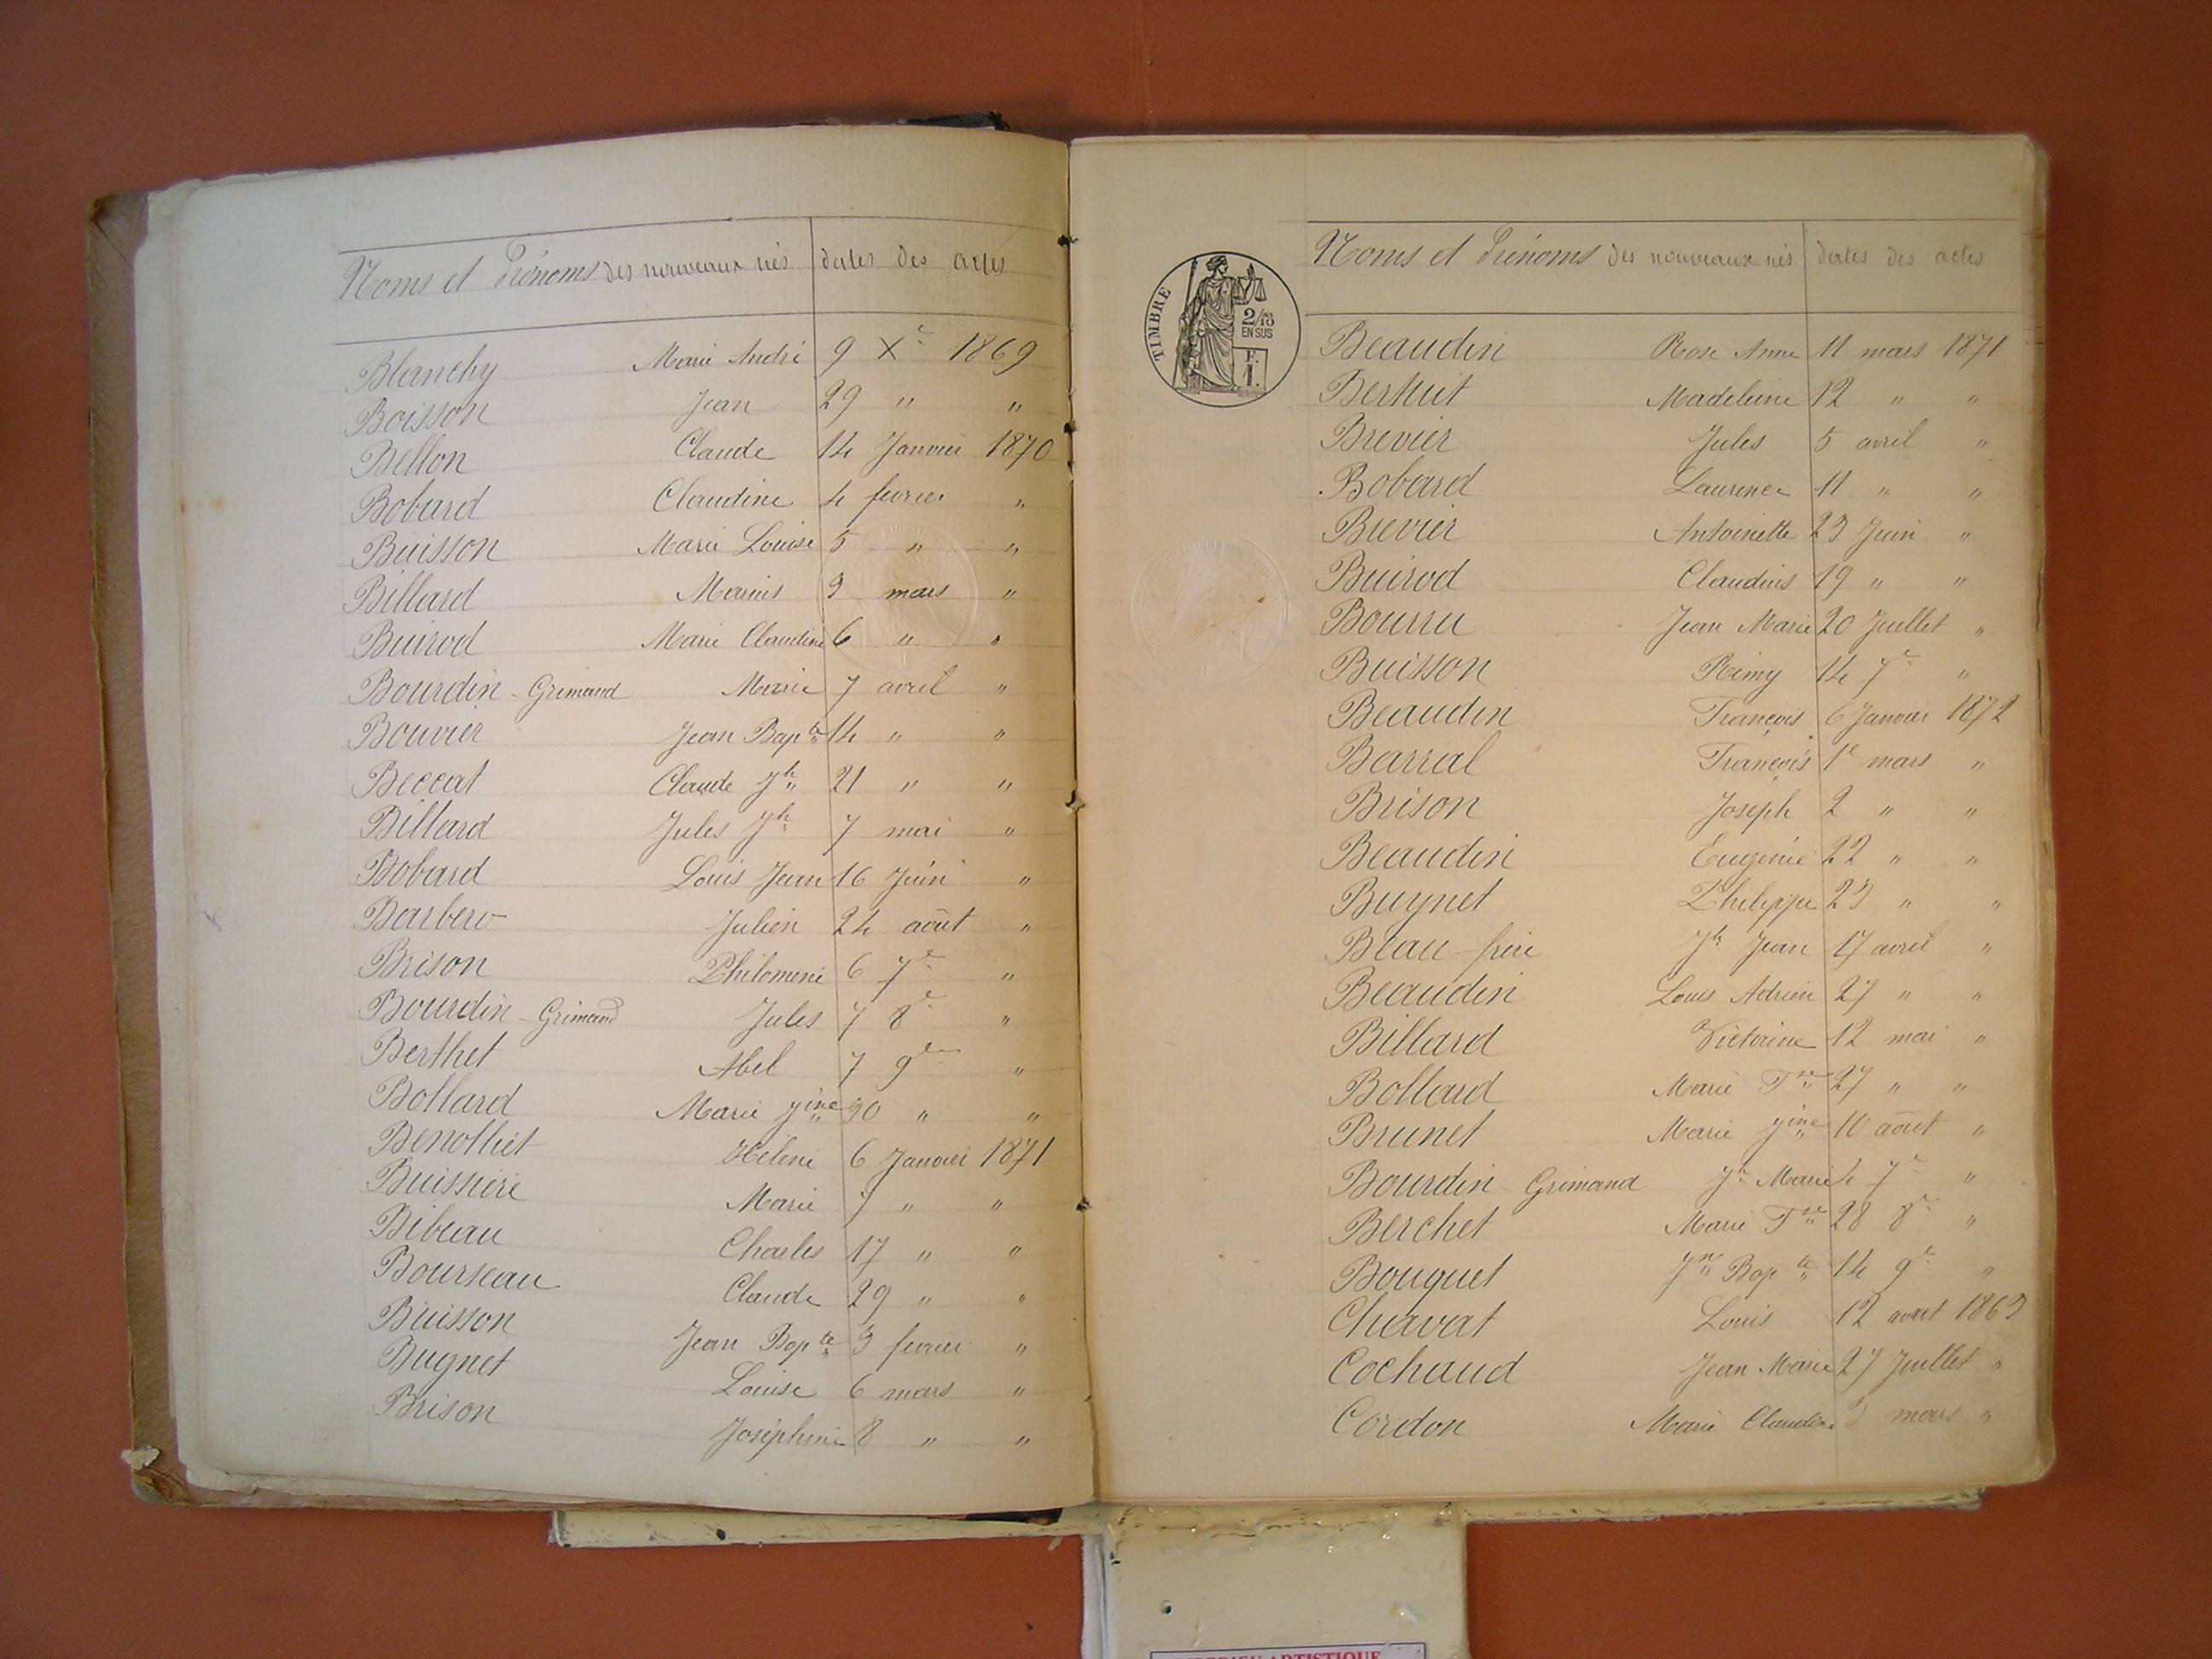 Noms et Prénoms des nouveaux nés dates des actes
Blanchy Marie André 9 Xe 1869
Boisson Jean 29 " "
Bellon Claude 14 Janvier 1870
Bobard Claudine 4 fevrier "
Buisson Marie Louise 5 " "
Billard Marius 3 mars "
Buirod Marie Claudine 6 " "
Bourdin-Grimand Marie 7 avril "
Bouvier Jean Bapte 14 " "
Beccat Claude Jh 21 " "
Billard Jules Jh 7 mai "
Bobard Louis Jean 16 Juin "
Barbero Julien 24 août "
Brison Philomene 6 7e "
Bourdin-Grimand Jules 7 8e "
Berthet Abel 7 9e "
Bollard Marie Jine 30 " "
Benolliet Helene 6 Janvier 1871
Buissiere Marie 7 " "
Bibeau Charles 17 " "
Bourseau Claude 29 " "
Buisson Jean Bapte 3 fevrier "
Bugnet Louise 6 mars "
Brison Joséphine 8 " "
TIMBRE
2/10
EN SUS
F.
1.
Noms et Prénoms des nouveaux nés dates des actes
Beaudin Rose Anne 11 mars 1871
Madeleine 12 " "
Brevier Jules 5 avril "
Bobard Laurence 11 " "
Brevier Antoinette 23 Juin "
Buirod Claudius 19 " "
Bourru Jean Marie 20 Juillet "
Buisson Rémy 14 7e "
Beaudin François 6 Janvier 1872
Barral François 1e mars "
Brison Joseph 2 " "
Beaudin Eugénie 22 " "
Bugnet Philippe 23 " "
Beau-frère Jh Jean 17 avril "
Beaudin Louis Adrien 27 " "
Billard Victorine 12 mai "
Bollard Marie Tse 27 " "
Brunet Marie Jine 10 août "
Bourdin-Grimand Jh Marie 4 7e "
Berchet Marie 28 8e "
Bouquet Jn Bapte 14 9e "
Chavat Louis 12 avril 1863
Cochaud Jean Marie 27 Juillet "
Cordon Marie Claudine 3 mars "